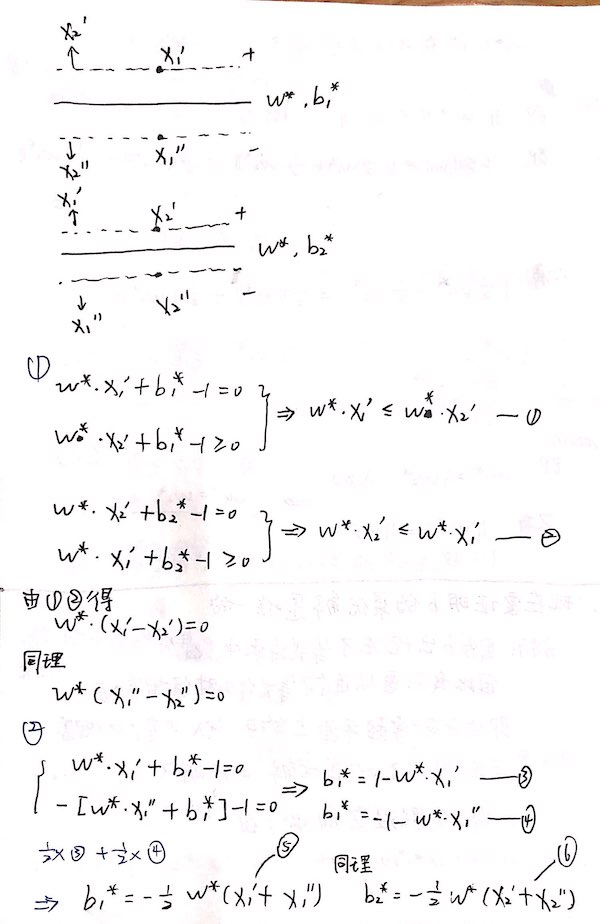 x₂' x₁' +
w*, b₁*
x₂'' x₁'' −
x₁' x₂' +
w*, b₂*
x₁'' x₂'' −
①
w*·x₁'+b₁*-1=0
w*·x₂'+b₁*-1≥0
⇒ w*·x₁' ≤ w*·x₂' —①
w*·x₂'+b₂*-1=0
w*·x₁'+b₂*-1≥0
⇒ w*·x₂' ≤ w*·x₁' —②
由①②得
w*·(x₁'-x₂')=0
同理
w*(x₁''-x₂'')=0
②
w*·x₁'+b₁*-1=0
-[w*·x₁''+b₁*]-1=0
⇒ b₁*=1-w*·x₁' —③
b₁*=-1-w*·x₁'' —④
½×③+½×④ ⑤ 同理 ⑥
⇒ b₁*=-½ w*(x₁'+x₁'') b₂*=-½ w*(x₂'+x₂'')